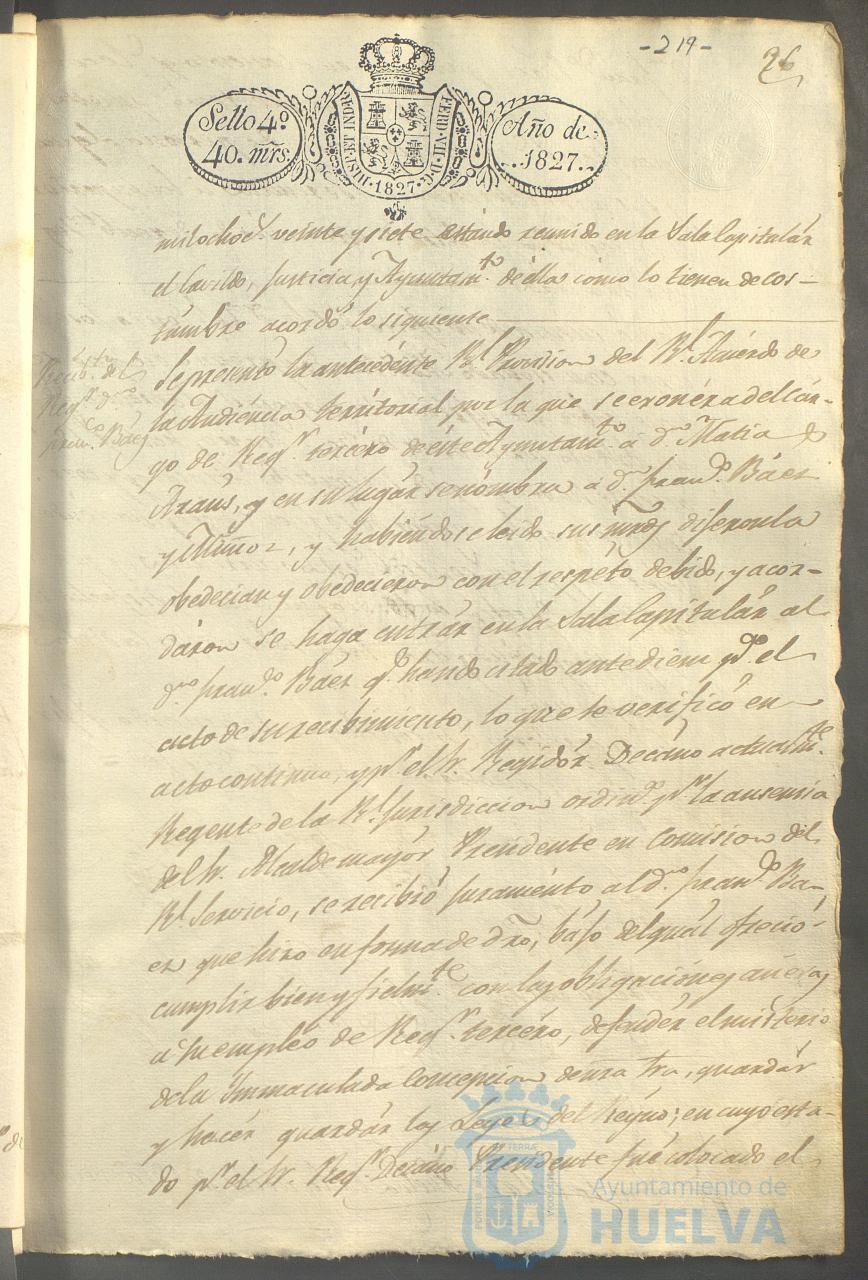 -219-
26
Sello 4º
40. mrs.
HISP. ET IND. R.
1827
FERD. VII. D. G.
Año de
1827.
mil ochoc.s veinte y siete estándo reunido en la Sala Capitulár
el Cavildo, Justicia, y Ayuntam.to de élla como lo tienen de cos-
tumbre acordó lo siguiente
Recib.to del
Reg.r d.n
Fran.co Báez
Se presentó la antecedénte R.l Provision del R.l Acuérdo de
la Audiéncia territorial por la que se exonéra del cár-
go de Reg.r tercéro de éste Ayuntam.to á d.n Matia
Araus, y en su lugár se nómbra á d.n Fran.co Báez
y Muñoz, y habiéndose leido sus mrds dijeron la
obedecian y obedecieron con el respéto debido, y acor-
dáron se haga entrár en la Sala Capitulár al
d.n Fran.co Báez q.e ha sido citado ante diem p.a el
acto de su recibimiento, lo que se verificó en
acto continuo, y p.r el S.r Regidór Decáno actualm.te
Regente de la R.l Jurisdiccion ordin.a p.r la ausencia
del S.r Alcalde mayór Presidente en Comision del
R.l Servicio, se recibió juraménto al d.n Fran.co Ba-
ez que hizo en forma de dro, bájo del quál ofreció
cumplir bien y fielm.te con las obligaciónes anexas
á su empléo de Reg.r tercéro, defendér el misterio
de la Immaculada Concepcion de nra Sra, guardár
y hacér guardár las Leyes del Réyno; en cuyo esta-
do p.r el S.r Reg.r Decáno Presidente fué colocado el
Ayuntamiento de
HUELVA